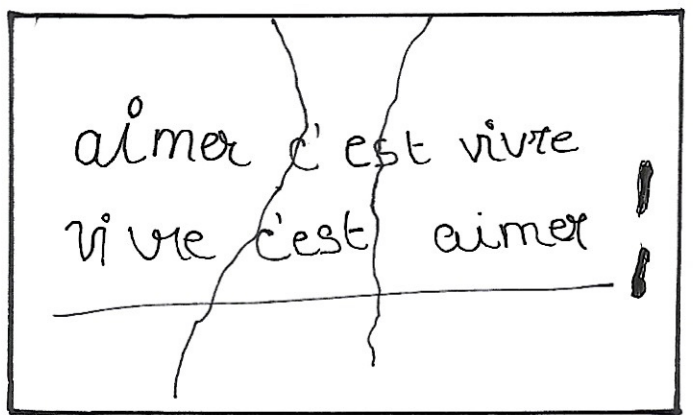 aimer c'est vivre
vivre c'est aimer !